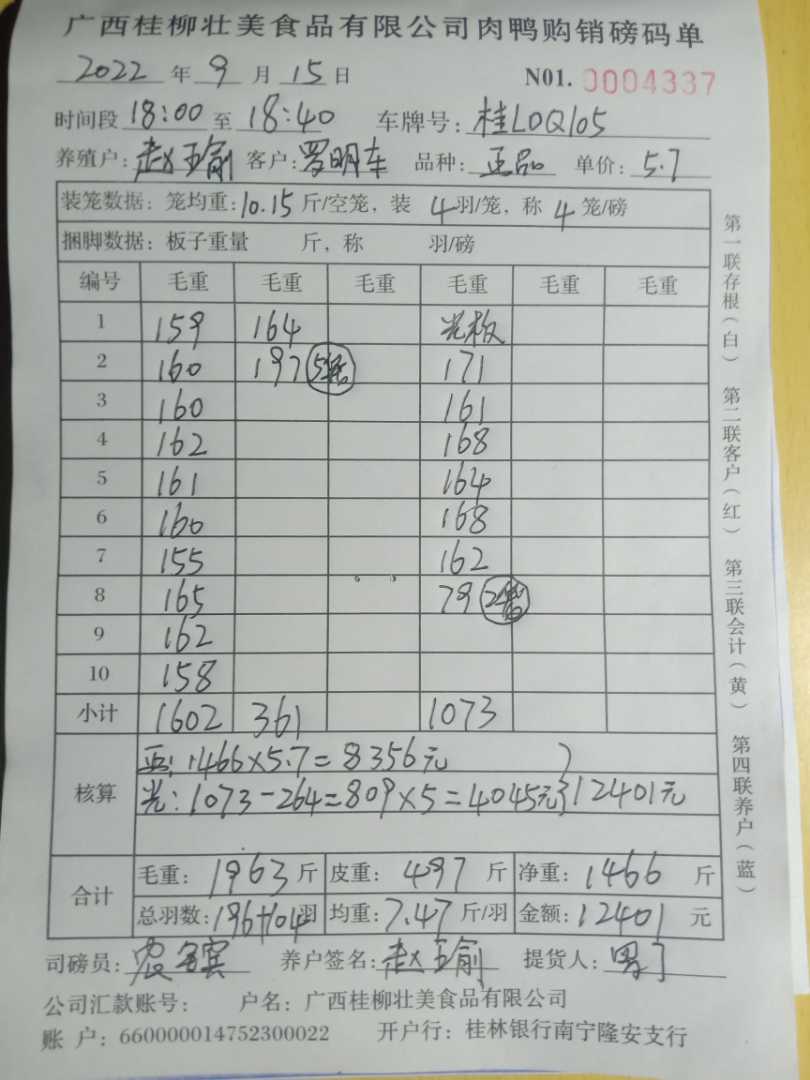 广西桂柳壮美食品有限公司肉鸭购销磅码单
2022 年 9 月 15 日 N01. 0004337
时间段 18:00 至 18:40 车牌号: 桂L0Q105
养殖户: 赵玉俞 客户: 罗明车 品种: 正品 单价: 5.7
装笼数据: 笼均重: 10.15 斤/空笼, 装 4 羽/笼, 称 4 笼/磅
捆脚数据: 板子重量 斤, 称 羽/磅
编号 毛重 毛重 毛重 毛重 毛重 毛重
1 159 164 光板
2 160 197 5笼 171
3 160 161
4 162 168
5 161 164
6 160 168
7 155 162
8 165 79 2笼
9 162
10 158
小计 1602 361 1073
核算
正: 1466×5.7=8356元 }
光: 1073-264=809×5=4045元 } 12401元
合计
毛重: 1963 斤 皮重: 497 斤 净重: 1466 斤
总羽数: 196+104 羽 均重: 7.47 斤/羽 金额: 12401 元
司磅员: 养户签名: 赵玉俞 提货人:
公司汇款账号: 户名: 广西桂柳壮美食品有限公司
账 户: 660000014752300022 开户行: 桂林银行南宁隆安支行
第一联存根(白) 第二联客户(红) 第三联会计(黄) 第四联养户(蓝)